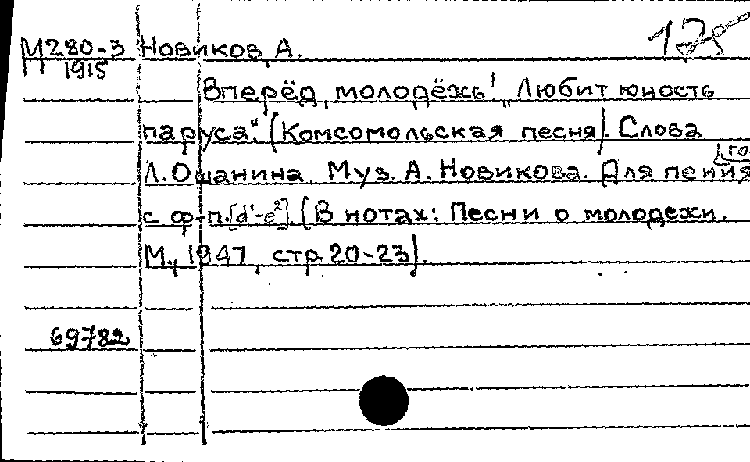 М280-3 Новиков, А.
1915
Вперёд, молодёжь! „Любит юность
паруса". (Комсомольская песня). Слова
Л. Ошанина. Муз. А. Новикова. Для пения
с ф-п. [d¹-e²]. (В нотах: Песни о молодежи.
М., 1947, стр. 20-23).
69782